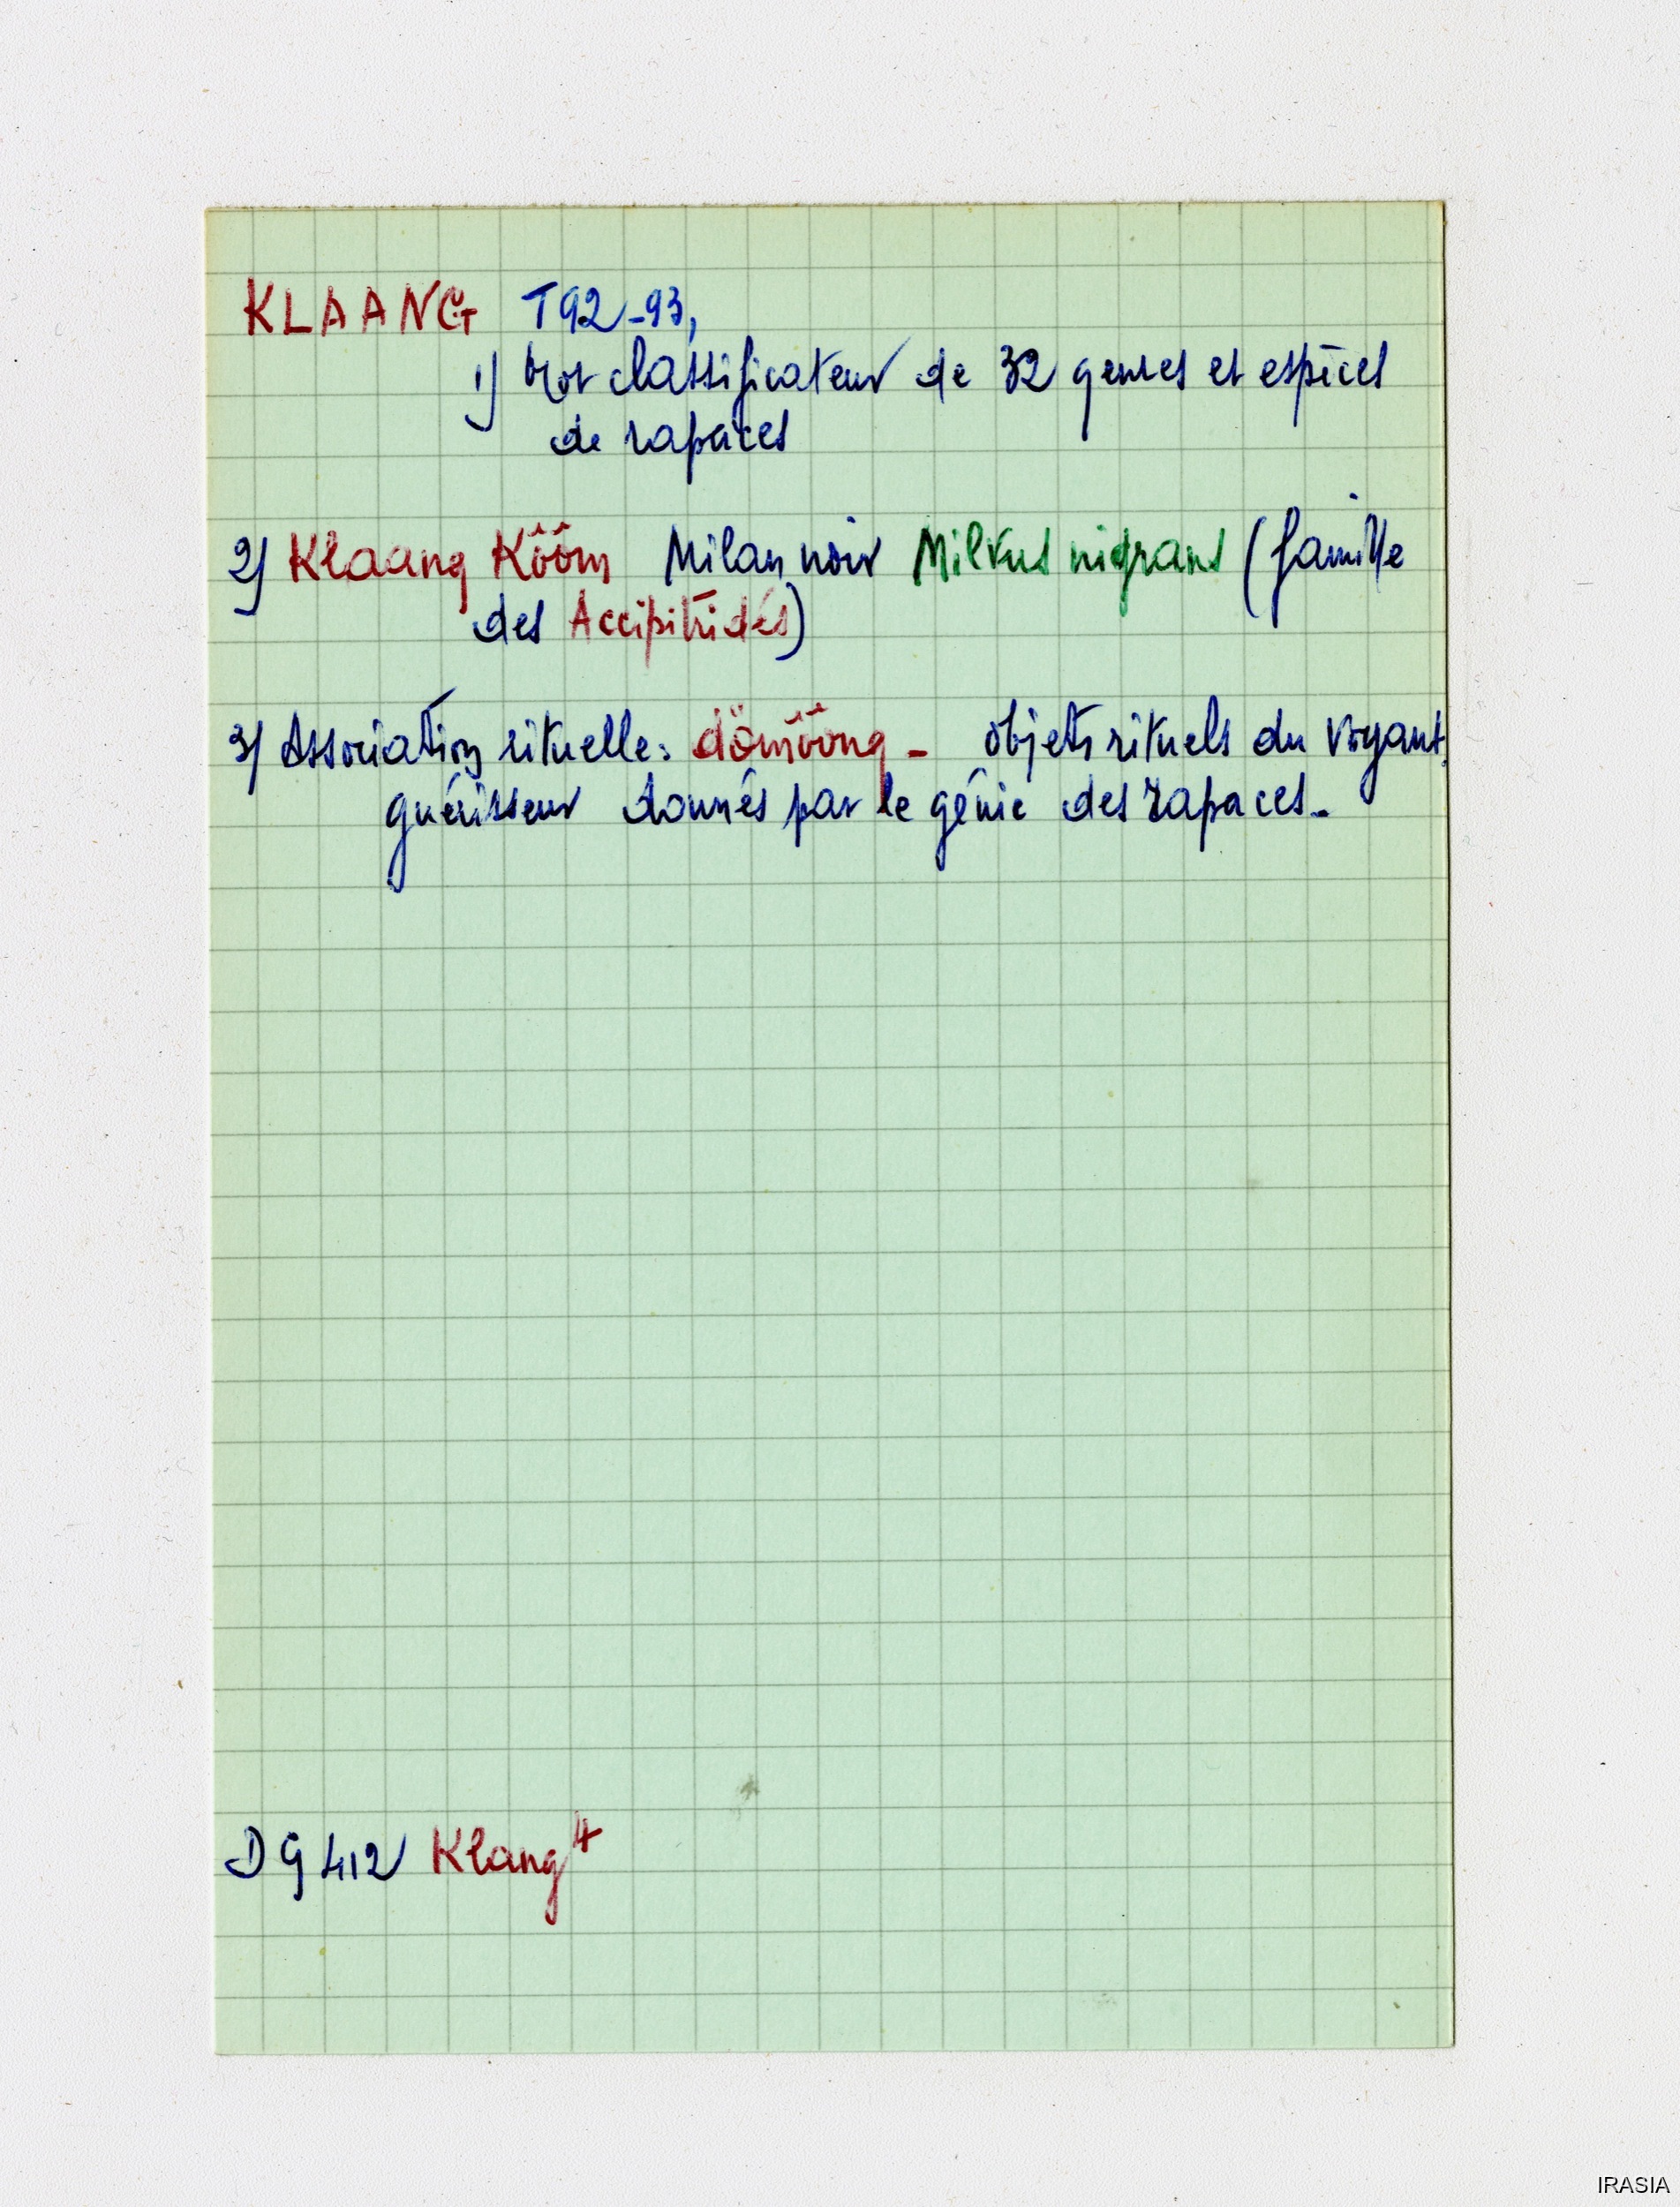 KLAANG T92-93,
1) Mot classificateur de 32 genres et espèces
de rapaces
2) Klaang Kôôm Milan noir Milvus nigrans (famille
des Accipitridés)
3) Association rituelle: dömôông - objets rituels du voyant
guérisseur donnés par le génie des rapaces.
DG 412 Klang 4
IRASIA